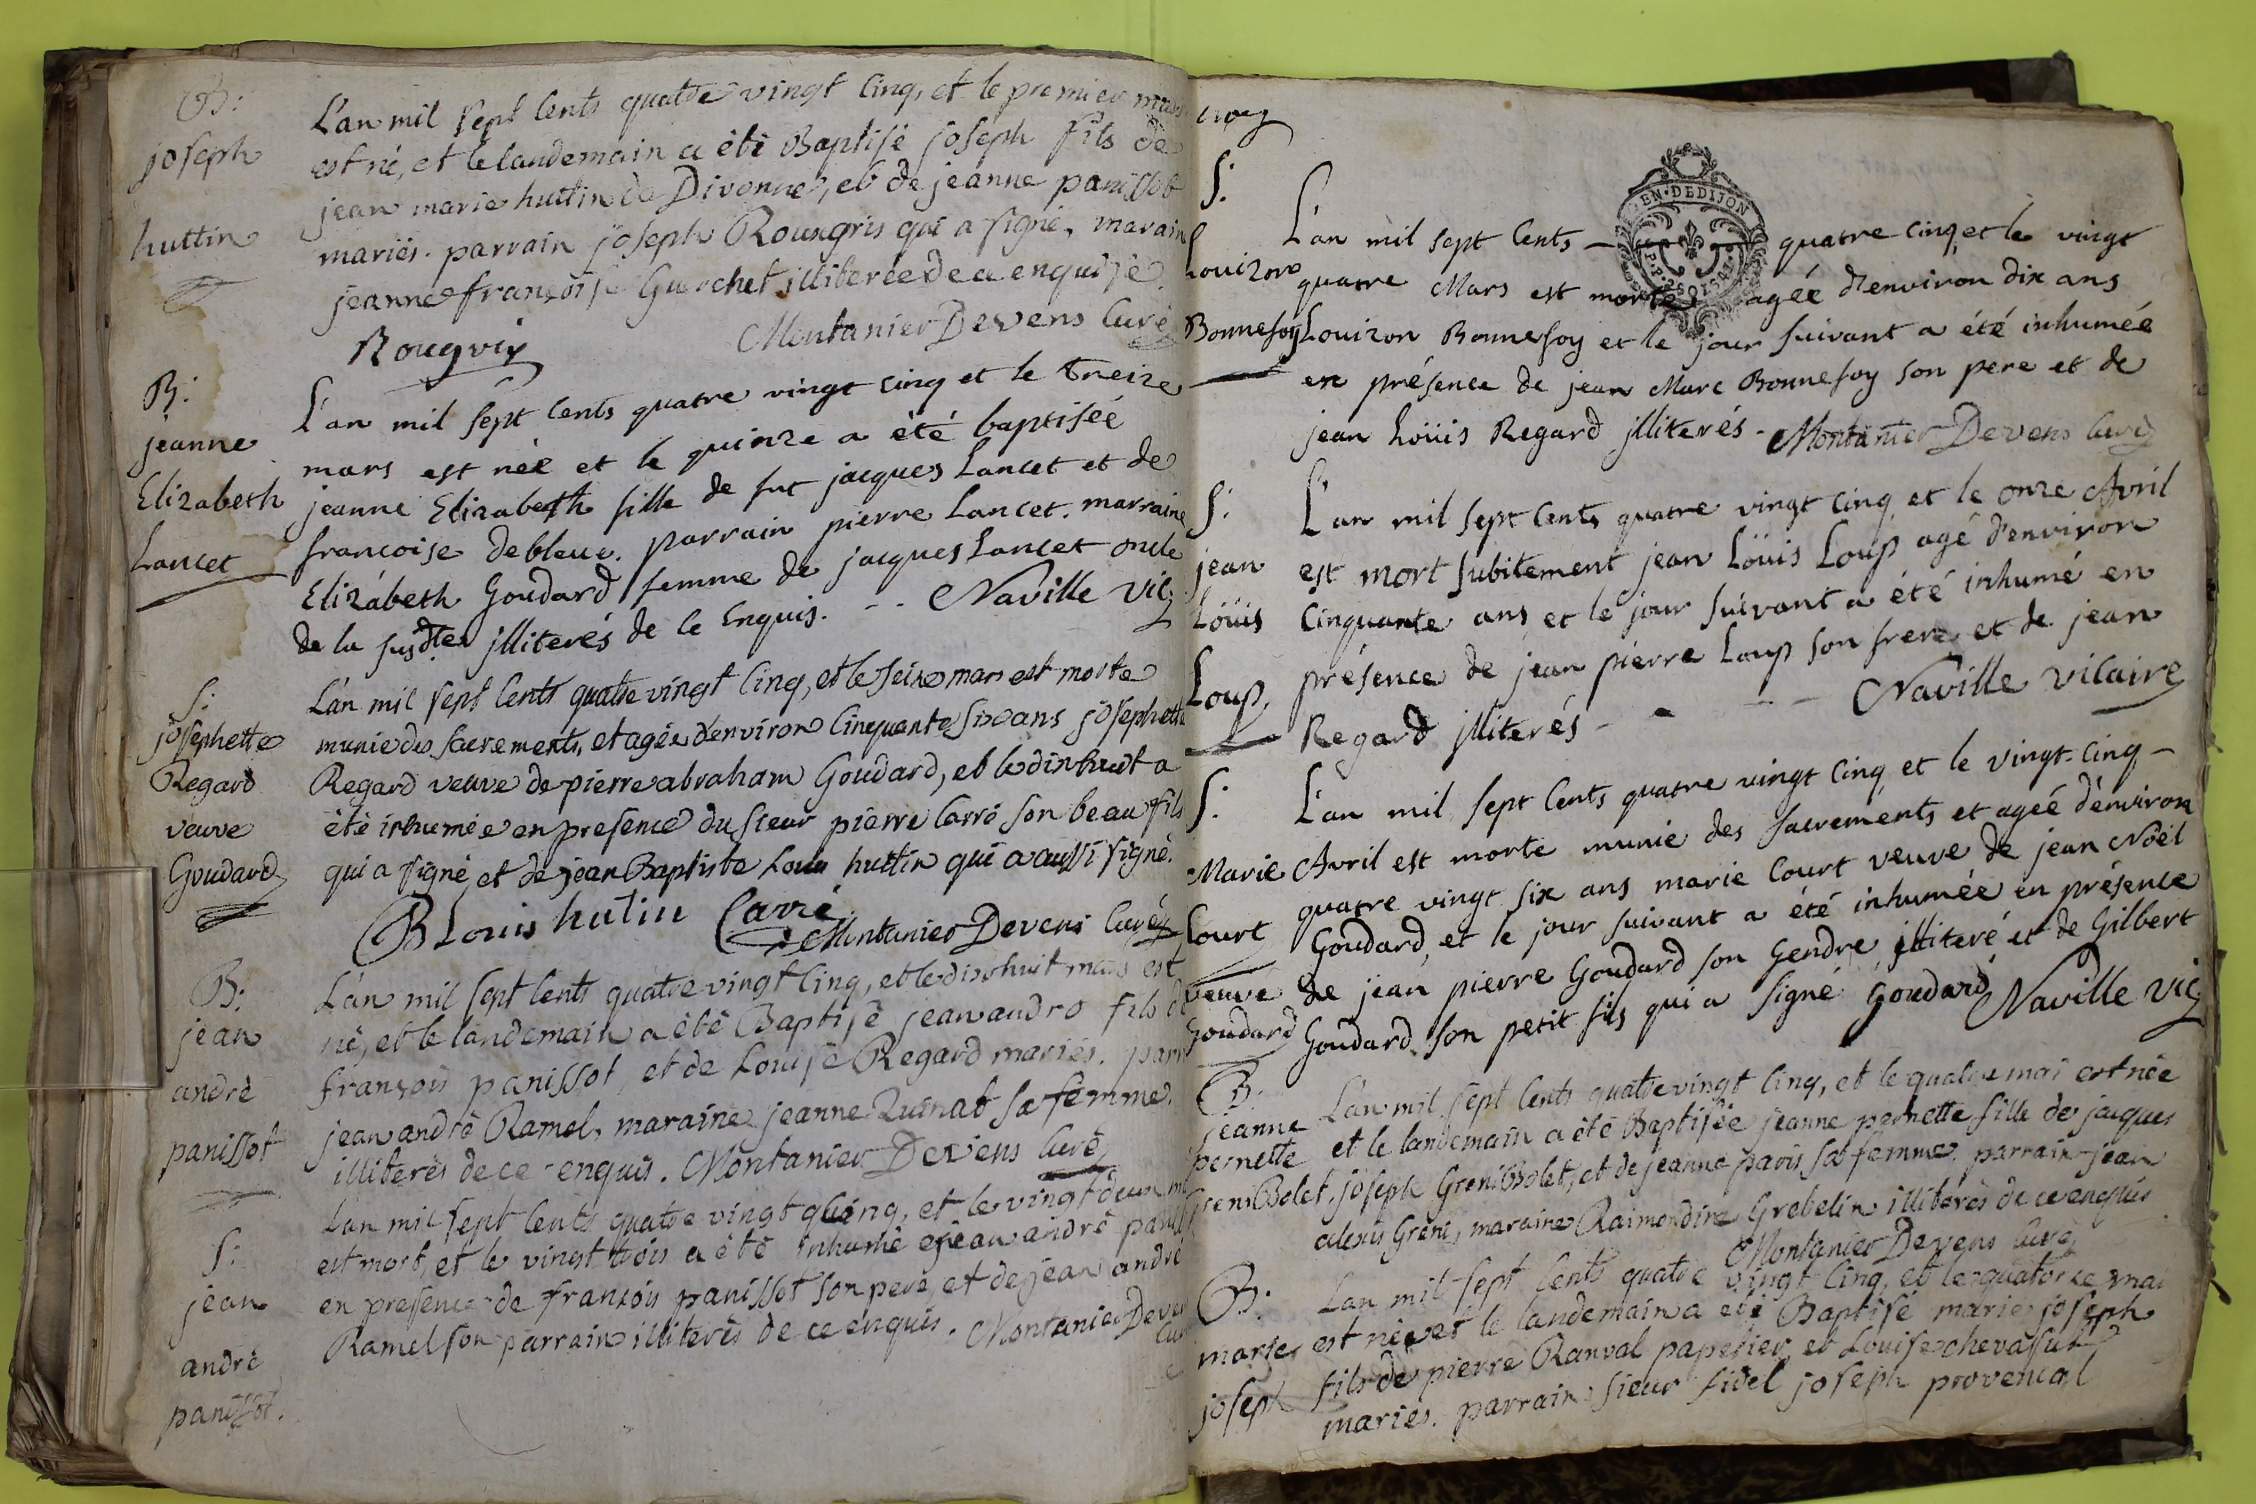 B:
joseph
huttin
L'an mil sept Cents quatre vingt Cinq, et le premier mars
est né, et le landemain a été Baptisé joseph fils de
jean marie huttin de Divonne, et de jeanne panissot
mariés. parrain joseph Rouxgris qui a signé, maraine
jeanne françoise Guerchet illiterée de ce enquise.
Montanier Devens Curé
B:
jeanne
Elizabeth
Lancet
L'an mil sept Cents quatre vingt cinq et le Treize
mars est néé et le quinze a été baptiséé
jeanne Elizabeth fille de fut jacques Lancet et de
francoise debleue. parrain pierre Lancet. marraine
Elizabeth Goudard femme de jacques Lancet oncle
de la susdte illiterés de le Enquis. - - Naville vic
S:
josephette
Regard
veuve
Goudard
L'an mil sept Cents quatre vingt Cinq, et le seize mars est morte
munie des sacrements, et agée d'environ Cinquante six ans josephette
Regard veuve de pierre abraham Goudard, et le dixhuit a
été inhumée en presence du sieur pierre Carré son beau fils
qui a signé, et de jean Baptiste Louis huttin qui a aussi signé.
B Louis hutin Carré
Montanier Devens Curé
B:
jean
andré
panissot
L'an mil sept Cents quatre vingt Cinq, et le dixhuit mars est
né, et le landemain a été Baptisé jean andré fils de
françois panissot, et de Louise Regard mariés. parr
jean andré Ramel, maraine jeanne Quinat sa femme.
illiterés de ce enquis. Montanier Devens Curé
S:
jean
andré
panissot.
L'an mil sept Cents quatre vingt Cinq, et le vingt deux
est mort, et le vingt trois a été inhumé jean andré
en presence de françois panissot son pere, et de jean andré
Ramel son parrain illiterés de ce enquis. Montanier Devens
S:
Louizon
Bonnefoy
GEN. DE DIJON
L'an mil sept Cents - quatre cinq, et le vingt
quatre Mars est morte agéé d'environ dix ans
Louizon Bonnefoy et le jour suivant a été inhuméé
en présence de jean Marc Bonnefoy son pere et de
jean Loüis Regard jlliterés - Montanier Devens Curé
S:
jean
Loüis
Loup,
L'an mil sept Cents quatre vingt cinq et le onze Avril
est mort subitement jean Loüis Loup agé d'environ
Cinquante ans et le jour suivant a été inhumé en
présence de jean pierre Loup son frere et de jean
Regard jlliterés - - - - Naville vicaire
S:
Marie
Court
veuve
Goudard
L'an mil sept Cents quatre vingt cinq et le vingt-cinq -
Avril est morte munie des sacrements et ageé d'environ
quatre vingt six ans marie Court veuve de jean Noël
Goudard, et le jour suivant a été inhuméé en présence
de jean pierre Goudard son Gendre illiteré et de Gilbert
Goudard son petit fils qui a signé Goudard Naville vic
B:
jeanne
pernette
L'an mil sept Cents quatre vingt Cinq, et le quatre mai est née
et le landemain a été Baptisée jeanne pernette fille de jacques
joseph Greni Bolet, et de jeanne pavis sa femme. parrain jean
alexis Greni, maraine Raimondine Grebelin illiterés de ce enquis
Montanier Devens Curé
B:
marie
joseph
L'an mil sept Cents quatre vingt Cinq, et le quatorze mai
est née et le landemain a été Baptisé marie joseph
fils de pierre Ranval papetier, et Louise chevasut
mariés. parrain sieur fidel joseph provencal